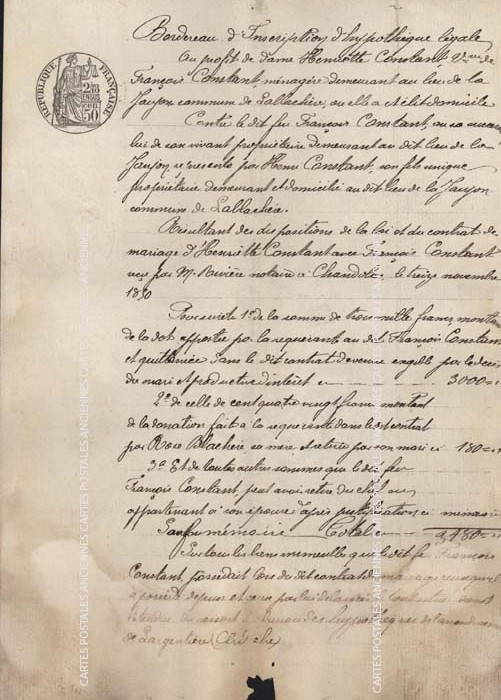 Bordereau d'Inscription d'hypothèque légale
au profit de dame Henriette Constant Vve de
François Constant, ménagère demeurant au lieu de la
Jaujon commune de Lablachère, ou elle a élit domicile
Contre le dit feu François Constant, ou sa succes
lui de son vivant propriétaire demeurant au dit lieu de la
Jaujon, représenté par Henri Constant, son fils unique
propriétaire demeurant et domicilié au dit lieu de la Jaujon
commune de Lablachère.
Résultant des dispositions de la loi et du contrat de
mariage d'Henriette Constant avec François Constant
reçu par Me Rivière notaire à le treize novembre
18
Pour sureté 1o de la somme de trois mille francs montant
de la dot apportée par la requérante au dit François Constant
et quittancée dans le dit contrat devenue exigible par le décès
du mari et productive d'intérêt ci 3000 =
2o de celle de cent quatre vingt francs montant
de la donation faite à la requérante dans le dit contrat
par Rose Blachère sa mère et retirée par son mari ci 180 =
3o Et de toutes autres sommes que le dit feu
François Constant, peut avoir retiré du chef ou
appartenant à son épouse après justification ci mémoire
Sauf mémoire Total
Sur tous les biens immeubles que le dit feu François
Constant, possédait lors du dit contrat de mariage
a possédé depuis et ceux par lui délaissés
l'étendue du ressort du bureau des hypothèques de l'arrondissement
de Largentière (Ardèche)
RÉPUBLIQUE FRANÇAISE
CARTES POSTALES ANCIENNES CARTES POSTALES ANCIENNES CARTES POSTALES ANCIENNES